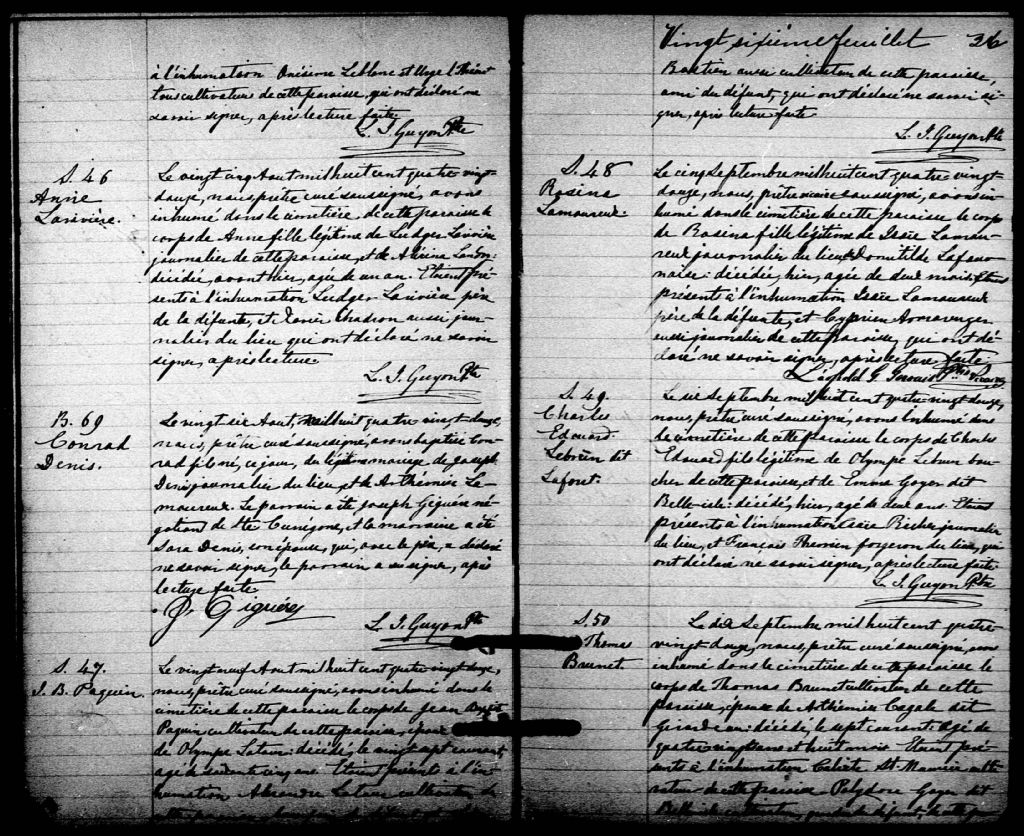 à l'inhumation Onésime Leblanc et
tous cultivateurs de cette paroisse, qui ont déclaré ne
savoir signer, après lecture faite.
L. J. Guyon Ptre
S. 46
Anne
Larivière.
Le vingt cinq Aout mil huit cent quatre vingt
douze, nous prêtre curé soussigné, avons
inhumé dans le cimetière de cette paroisse le
corps de Anne fille légitime de Ludger Larivière
journalier de cette paroisse, et de
décédée, avant hier, agée de un an. Etaient pré-
sents à l'inhumation Ludger Larivière père
de la défunte, et Xavier aussi jour-
nalier du lieu qui ont déclaré ne savoir
signer, après lecture.
L. J. Guyon Ptre
B. 69
Conrad
Denis.
Le vingt six Aout, mil huit cent quatre vingt douze,
nous, prêtre curé soussigné, avons baptisé Con-
rad fils né, ce jour, du légitime mariage de Joseph
Denis journalier du lieu, et de Arthémise La-
moureux. Le parrain a été Joseph Giguère né-
gociant de Ste Cunégonde, et la marraine a été
Sara Denis, son épouse, qui, avec le père, a déclaré
ne savoir signer, le parrain a su signer, après
lecture faite.
J. Giguère
L. J. Guyon Ptre
S. 47.
J. B. Paquin.
Le vingt neuf Aout mil huit cent quatre vingt douze,
nous, prêtre curé soussigné, avons inhumé dans le
cimetière de cette paroisse le corps de Jean Bapt.
Paquin cultivateur de cette paroisse, époux
de Olympe décédé, le vingt sept courant
agé de soixante cinq ans. Etaient présents à l'in-
humation Alexandre cultivateur de
Vingt sixième feuillet 26
Bastien aussi cultivateur de cette paroisse,
ami du défunt, qui ont déclaré ne savoir si-
gner, après lecture faite
L. J. Guyon Ptre
S. 48
Rosina
Lamoureux.
Le cinq Septembre mil huit cent quatre vingt
douze, nous, prêtre vicaire soussigné, avons in-
humé dans le cimetière de cette paroisse le corps
de Rosina fille légitime de Isaïe Lamou-
reux journalier du lieu et Domitilde
décédée, hier, agée de deux mois. Etaient
présents à l'inhumation Isaïe Lamoureux
père de la défunte, et Cyprien
aussi journalier de cette paroisse, qui ont dé-
claré ne savoir signer, après lecture faite.
Léopold G. Ptre Vicaire
S. 49.
Charles
Edouard
Lebrun dit
Laforet.
Le six Septembre mil huit cent quatre vingt douze,
nous, prêtre curé soussigné, avons inhumé dans
le cimetière de cette paroisse le corps de Charles
Edouard fils légitime de Olympe Lebrun bou-
cher de cette paroisse, et de Emma Goyer dit
Belle-isle: décédé, hier, agé de deux ans. Etaient
présents à l'inhumation Richer journalier
du lieu, et François Therrien forgeron du lieu, qui
ont déclaré ne savoir signer, après lecture faite.
L. J. Guyon Ptre
S. 50
Thomas
Brunet
Le dix Septembre mil huit cent quatre
vingt douze, nous, prêtre curé soussigné, avons
inhumé dans le cimetière de cette paroisse le
corps de Thomas Brunet cultivateur de cette
paroisse, époux de Arthémise Cazale dit
décédé, le sept courant agé de
quatre vingt ans et huit mois. Etaient pré-
sents à l'inhumation Calixte St-Maurice culti-
vateur de cette paroisse Polydore Goyer dit